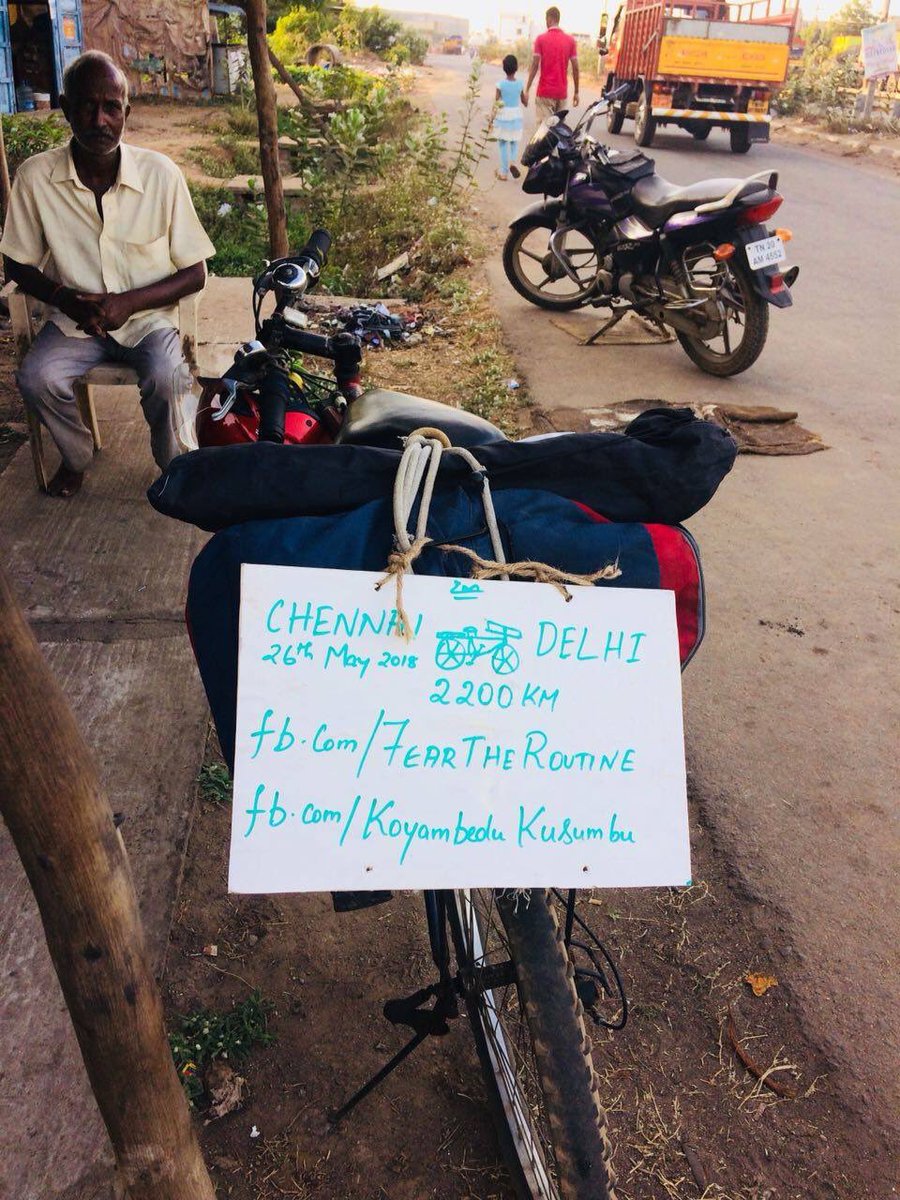 உ
CHENNAI DELHI
26th May 2018
2200 KM
fb.com/FEARTHEROUTINE
fb.com/Koyambedu Kusumbu
TN 20